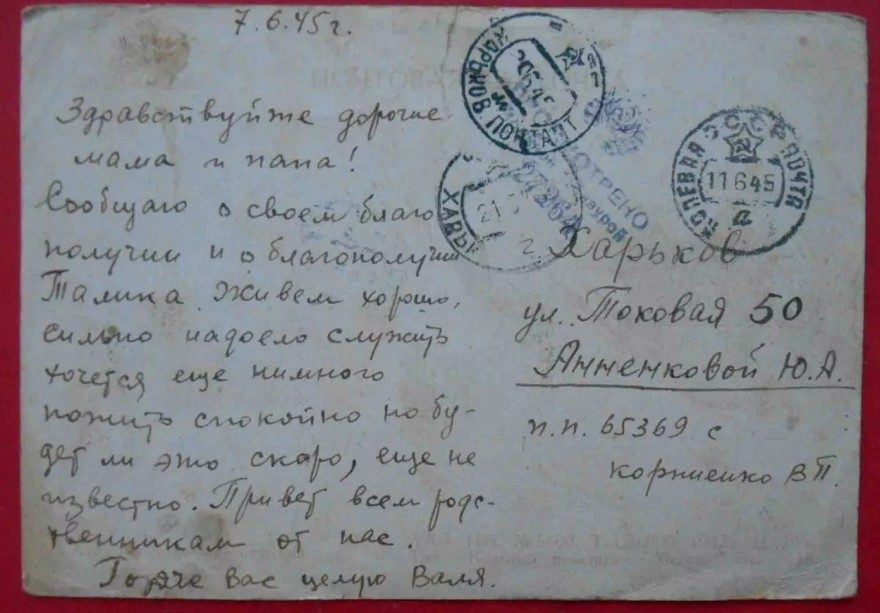 7.6.45г.
Здравствуйте дорогие
мама и папа!
Сообщаю о своем благо
получии и о благополучии
Талика живем хорошо,
сильно надоело служить
хочется еще нимного
пожить спокойно но бу-
дет ли это скоро, еще не
известно. Привет всем родс-
твенникам от нас.
Горяче вас целую Валя.
ХАРЬКОВ ПОЧТАМТ
ПОЛЕВАЯ ПОЧТА
СССР
11 6 45
Д
Харьков
ул. Токовая 50
Анненковой Ю.А.
п.п. 65369 с
корниенко В П.